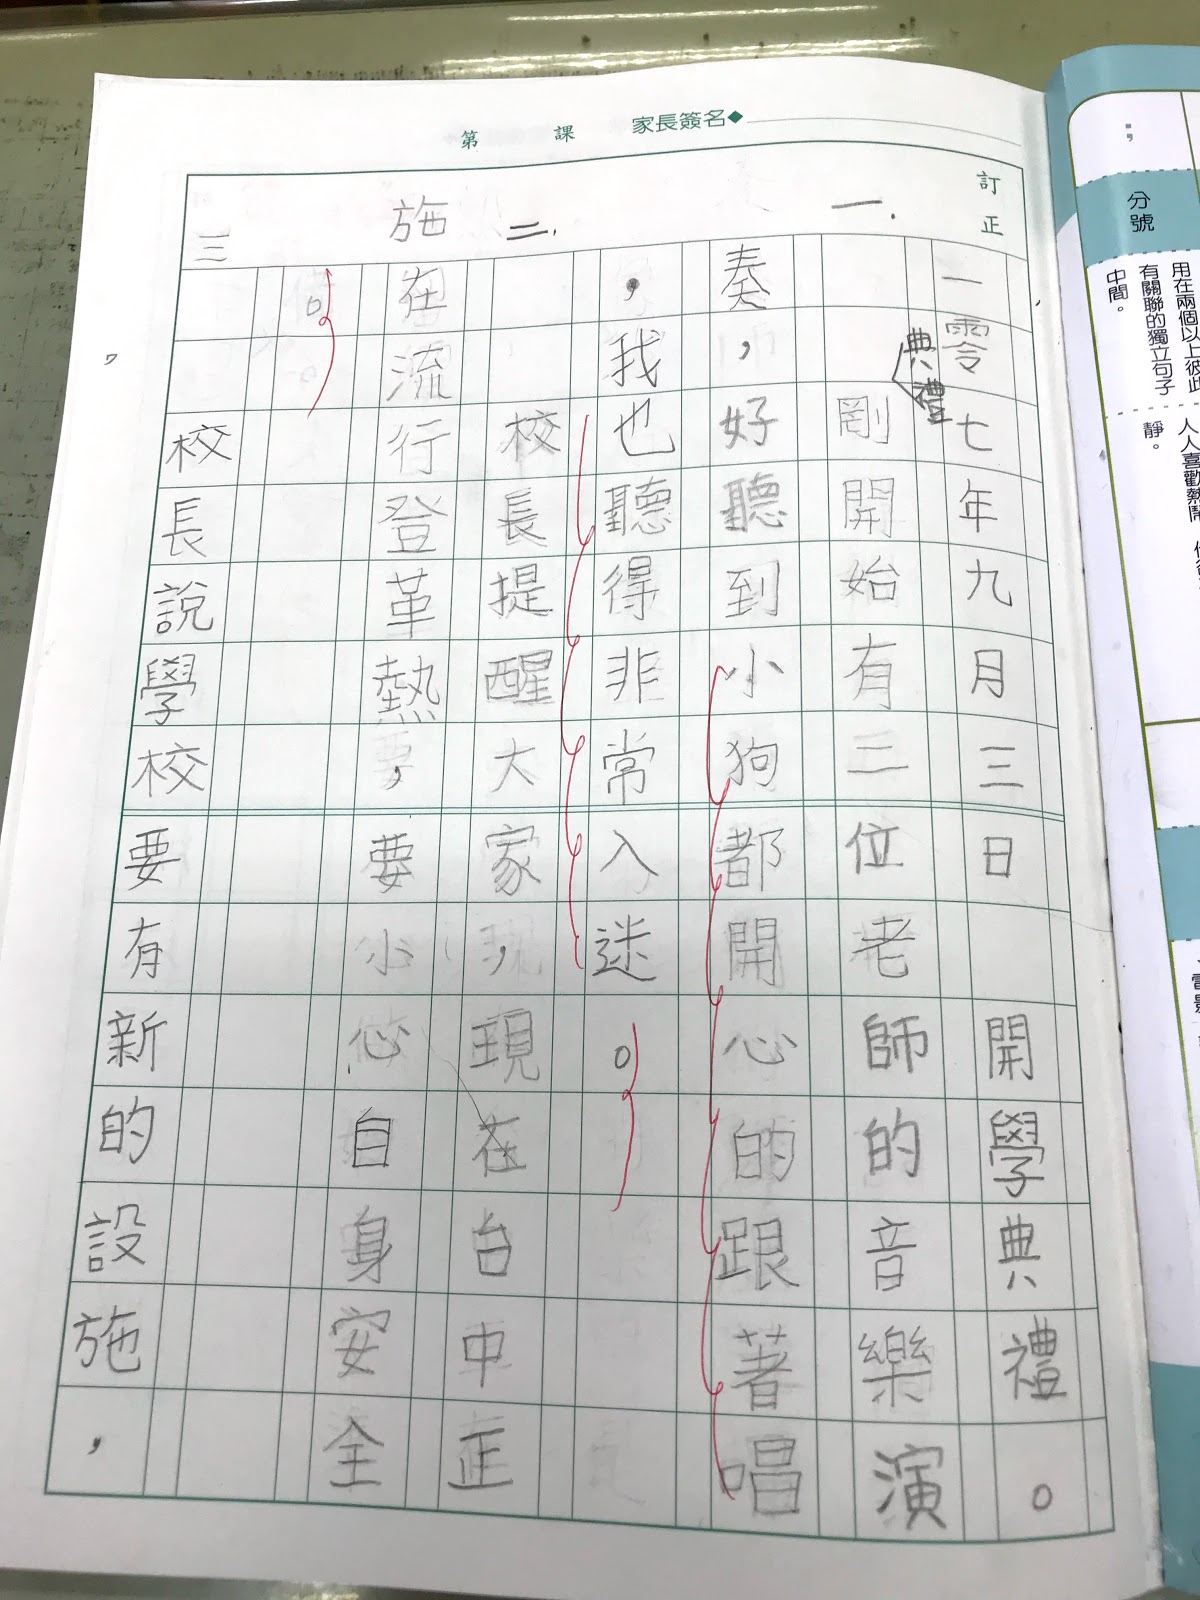 ；
分號
用在兩個以上彼此
有關聯的獨立句子
中間。
人人喜歡熱鬧
靜。
第 課 家長簽名◆
訂正
一零七年九月三日 開學典禮。
典禮
一.
剛開始有三位老師的音樂演
奏，好聽到小狗都開心的跟著唱
，我也聽得非常入迷。
二.
校長提醒大家，現在台中正
施
在流行登革熱，要小心自身安全
。
三
校長說學校要有新的設施，